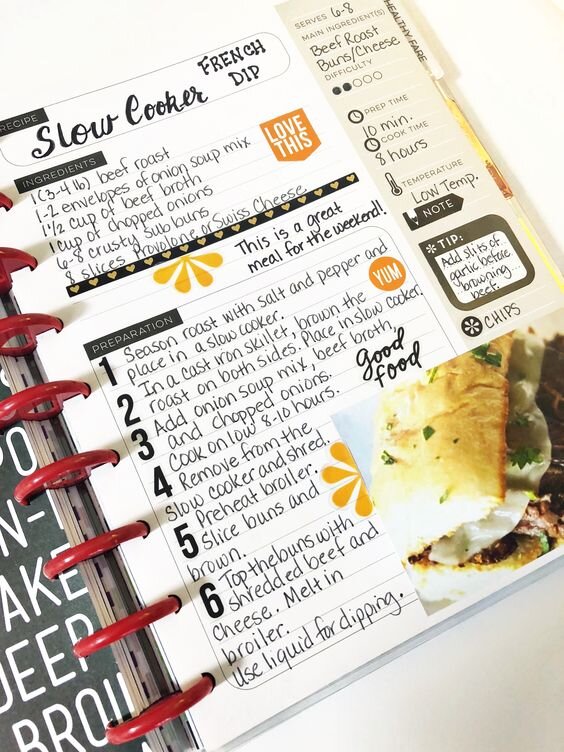 RECIPE
Slow Cooker FRENCH DIP
INGREDIENTS
1 (3-4 lb) beef roast
1-2 envelopes of onion soup mix
1 1/2 cup of beef broth
1 cup of chopped onions
6-8 crusty sub buns
8 slices Provolone or Swiss Cheese
LOVE
THIS
This is a great
meal for the weekend!
YUM
PREPARATION
1 Season roast with salt and pepper and
place in a slow cooker.
2 In a cast iron skillet, brown the
roast on both sides. Place in slow cooker.
3 Add onion soup mix, beef broth,
and chopped onions.
Cook on low 8-10 hours.
4 Remove from the
slow cooker and shred.
5 Preheat broiler.
Slice buns and
brown.
6 Top the buns with
shredded beef and
cheese. Melt in
broiler.
Use liquid for dipping.
good
food
SERVES 6-8
MAIN INGREDIENT(S)
Beef Roast
Buns/Cheese
DIFFICULTY
PREP TIME
10 min.
COOK TIME
8 hours
TEMPERATURE
Low Temp.
NOTE
TIP:
Add slits of
garlic before
browning...
beef.
CHIPS
HEALTHY FARE